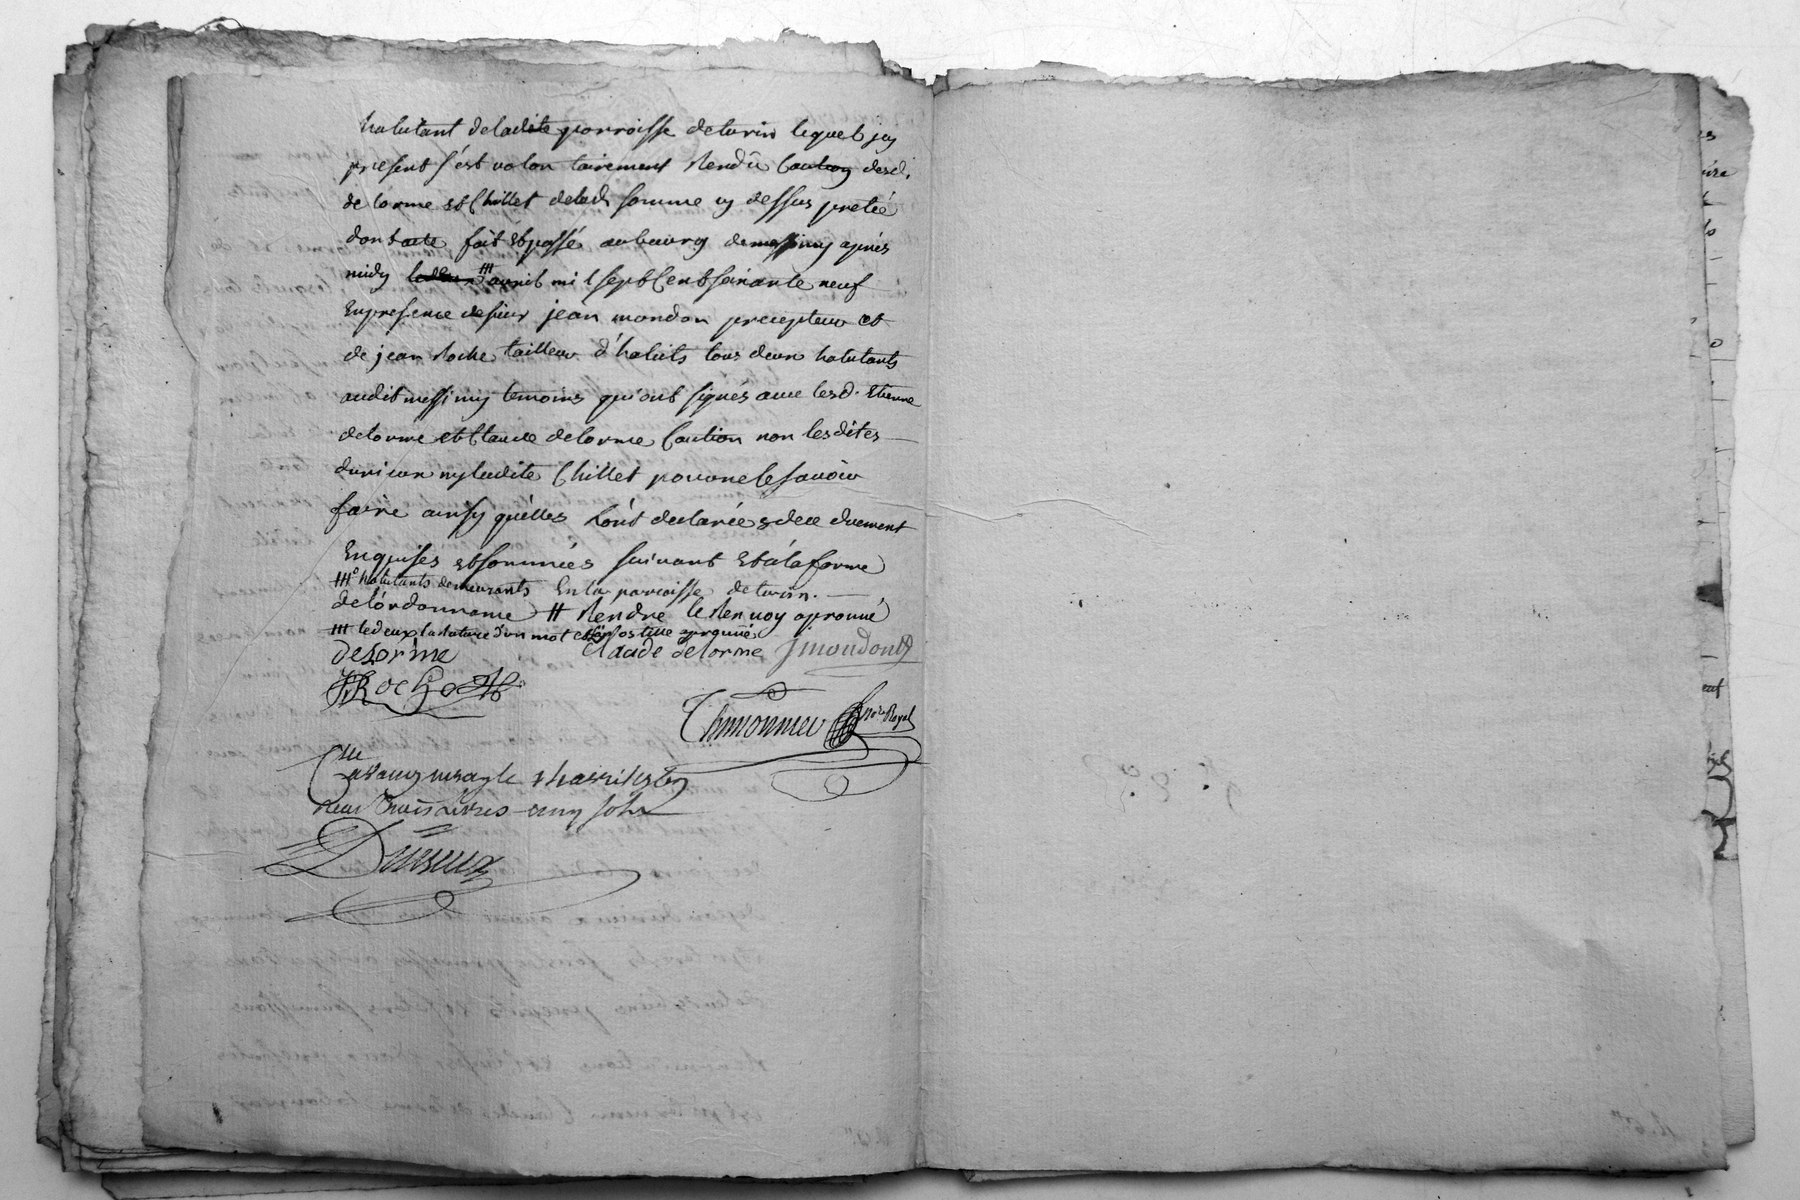 habitant de ladite parroisse de turin lequel icy
present s'est volontairement Rendû Caution desd.
de lorme et Chillet de lad. somme cy dessus pretée
dont acte fait et passé au bourg de messimy après
midy avril mil sept Cent soixante neuf
En presence de sieur jean mondon precepteur et
de jean Roche tailleur d'habits tous deux habitants
audit messimy temoins qui ont signés avec lesd. Etienne
delorme et Claude delorme Caution non les dites
ny ladite Chillet pour ne le savoir
faire ainsy quélles l'ont declarée de ce duement
Enquises et sommées suivant et á la forme
habitants demeurants En la parroisse de turin.
de l'ordonnance Rendre le Renvoy aprouvé
le deux la Rature d'un mot et aprouvé
delorme Claude delorme Jmondon
JRoche
Thimonnier no.re Royal
Con.lle
neuf livres cinq sols